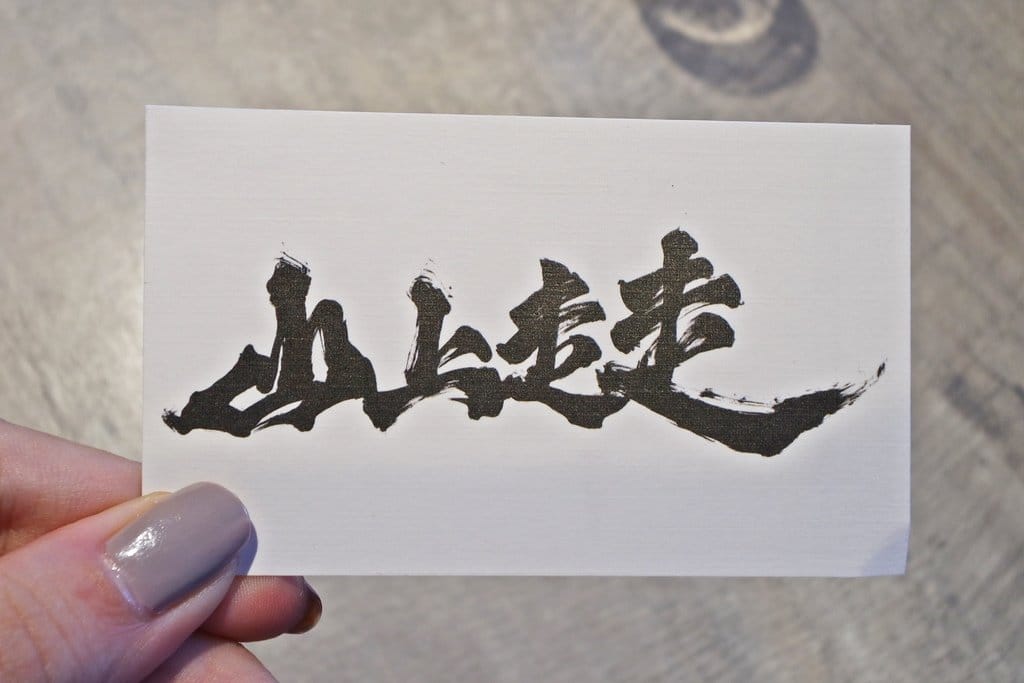 山上走走